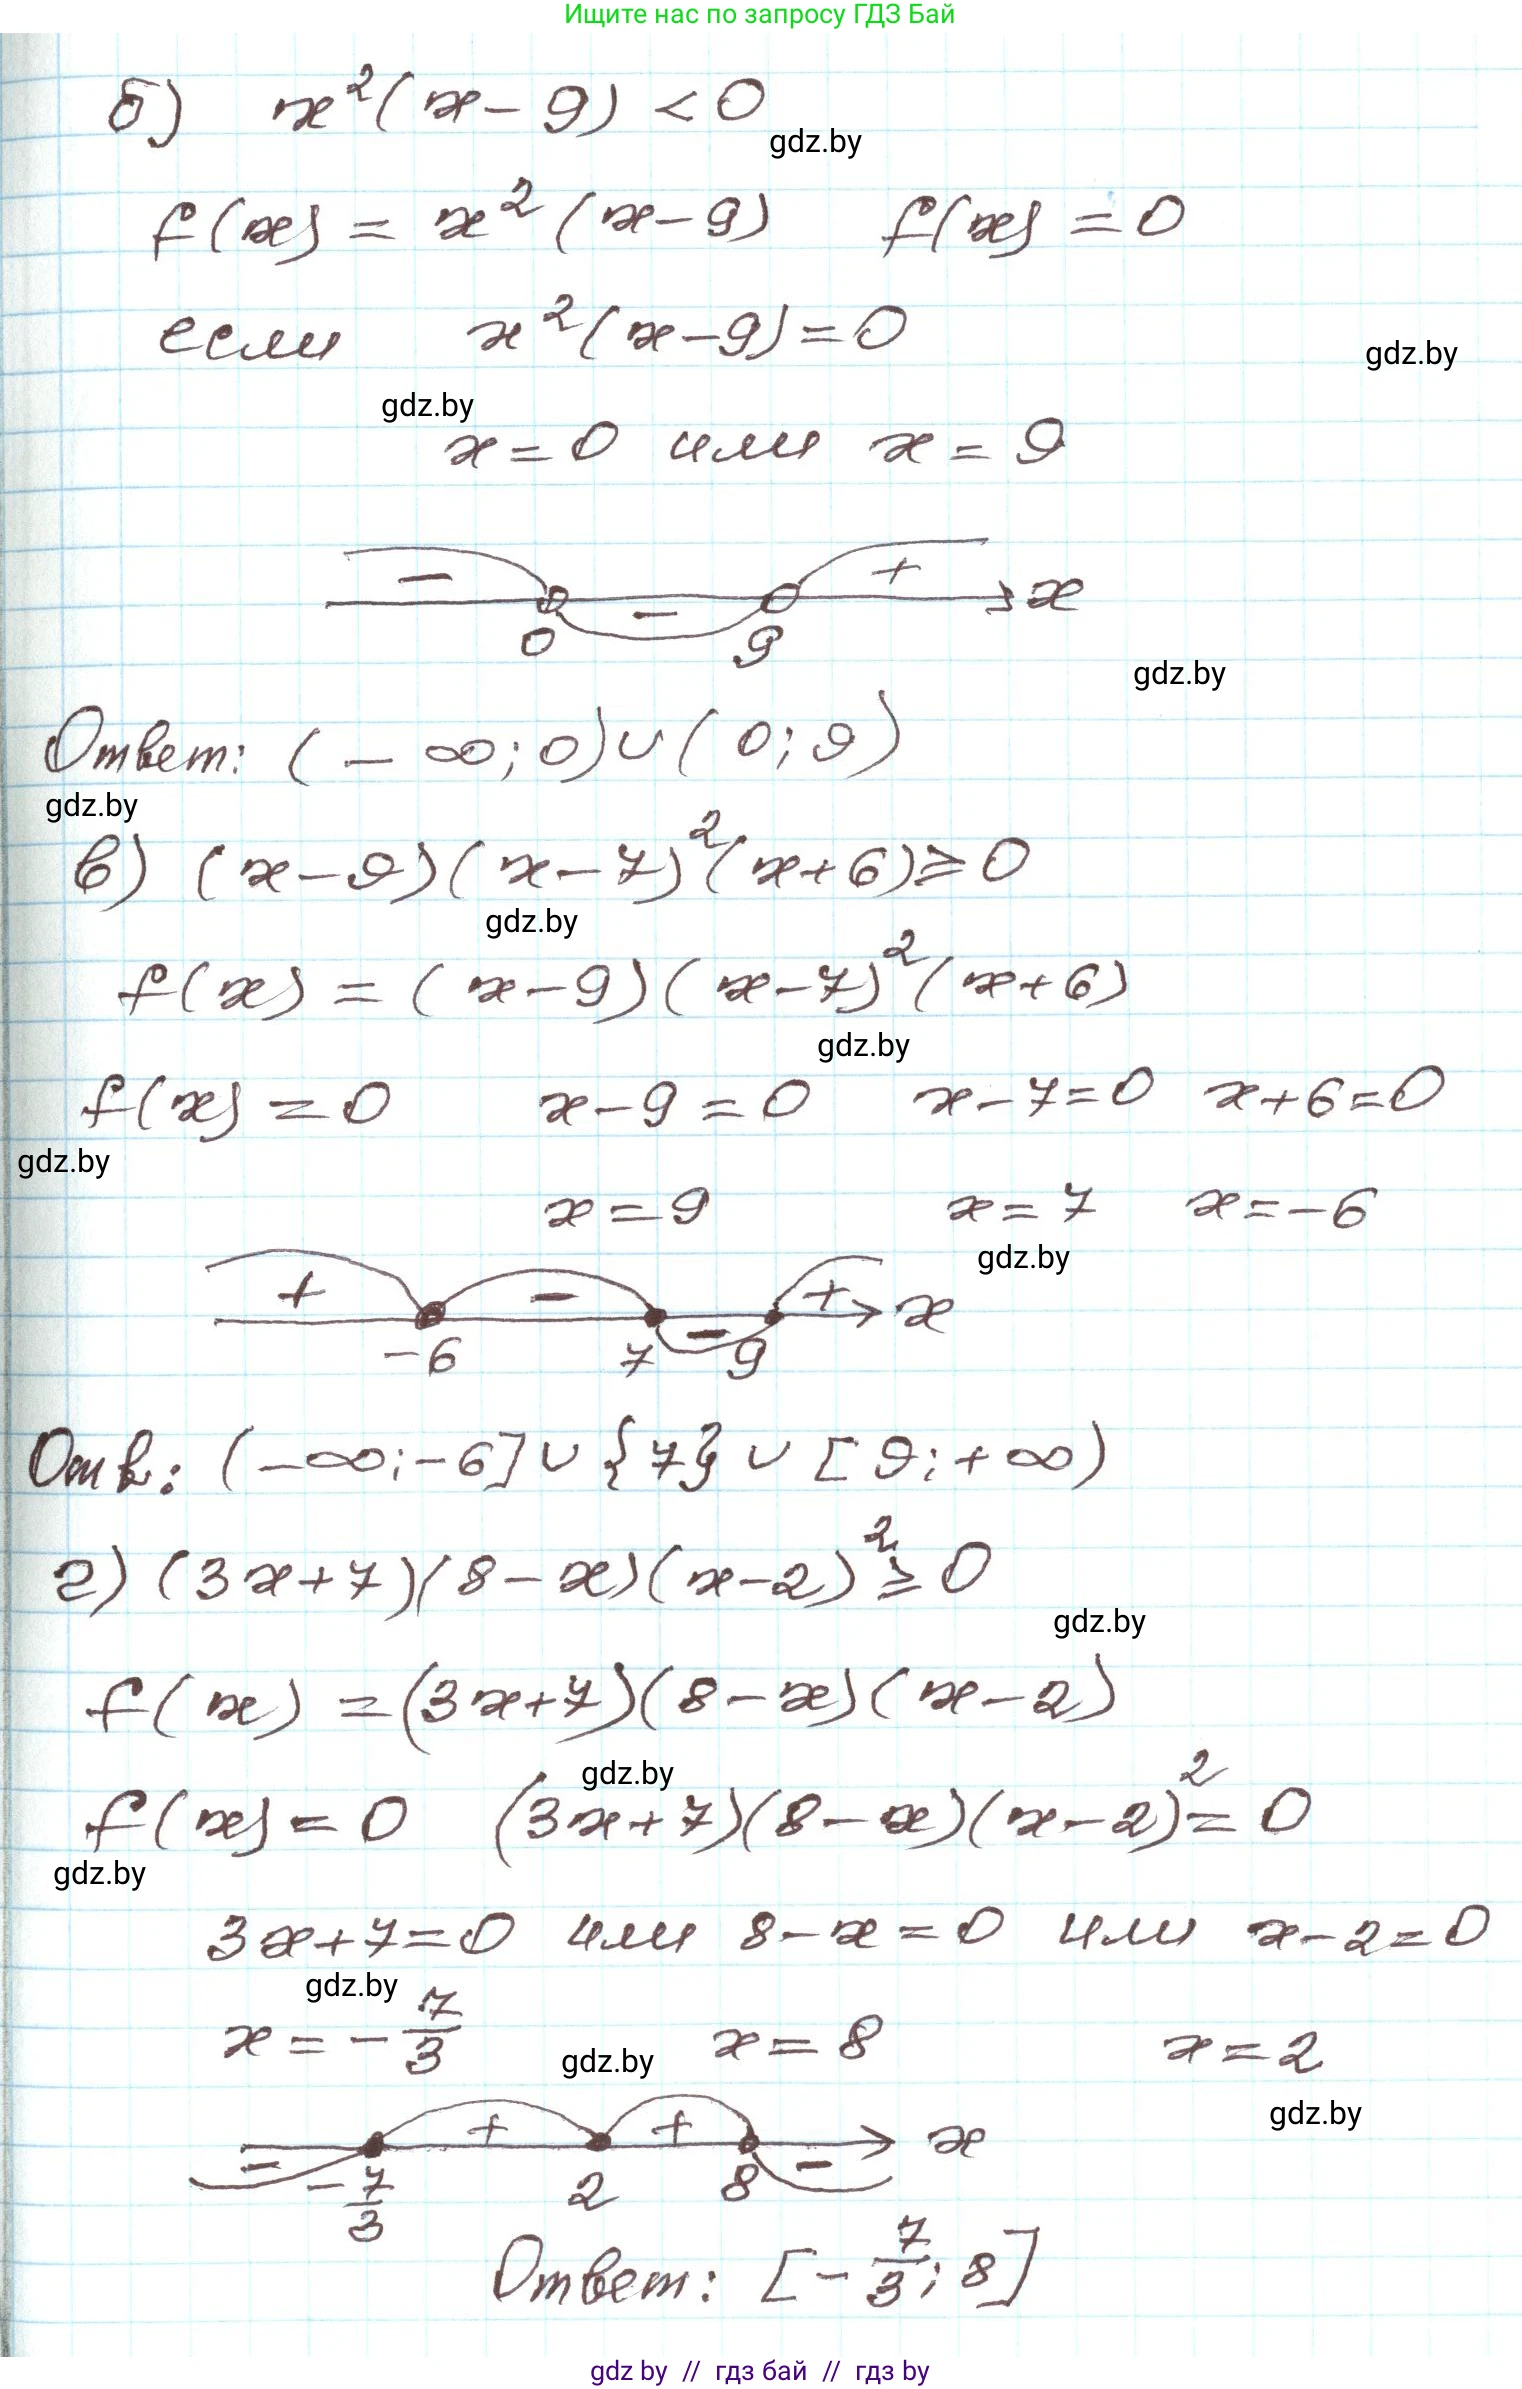 Ищите нас по запросу ГДЗ Бай
б) x²(x-9) < 0
gdz.by
f(x) = x²(x-9) f(x) = 0
если x²(x-9) = 0
gdz.by
gdz.by
x = 0 или x = 9
- - + x
0 9
gdz.by
Ответ: (-∞; 0) ∪ (0; 9)
gdz.by
в) (x-9)(x-7)²(x+6) ≥ 0
gdz.by
f(x) = (x-9)(x-7)²(x+6)
gdz.by
f(x) = 0 x-9 = 0 x-7=0 x+6=0
gdz.by
x = 9 x = 7 x = -6
gdz.by
+ - - + x
-6 7 9
Отв: (-∞; -6] ∪ {7} ∪ [9; +∞)
г) (3x+7)(8-x)(x-2)² ≥ 0
gdz.by
f(x) = (3x+7)(8-x)(x-2)
gdz.by
f(x) = 0 (3x+7)(8-x)(x-2)² = 0
gdz.by
3x+7=0 или 8-x=0 или x-2=0
gdz.by
x = -7/3 x = 8 x = 2
gdz.by
gdz.by
- + + - x
-7/3 2 8
Ответ: [-7/3; 8]
gdz by // гдз бай // гдз by